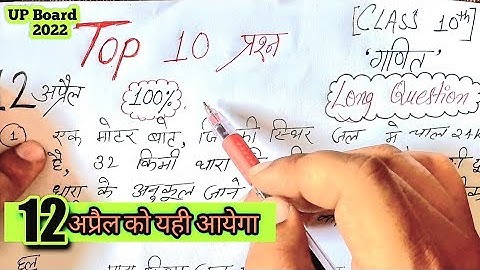 UP Board
2022
Top 10 प्रश्न
[CLASS 10th]
'गणित'
12 अप्रैल
100%
Long Question
① एक मोटर बोट, जिसकी स्थिर जल में चाल 24
है, 32 किमी धारा के
धारा के अनुकूल जाने
12 अप्रैल को यही आयेगा
हल